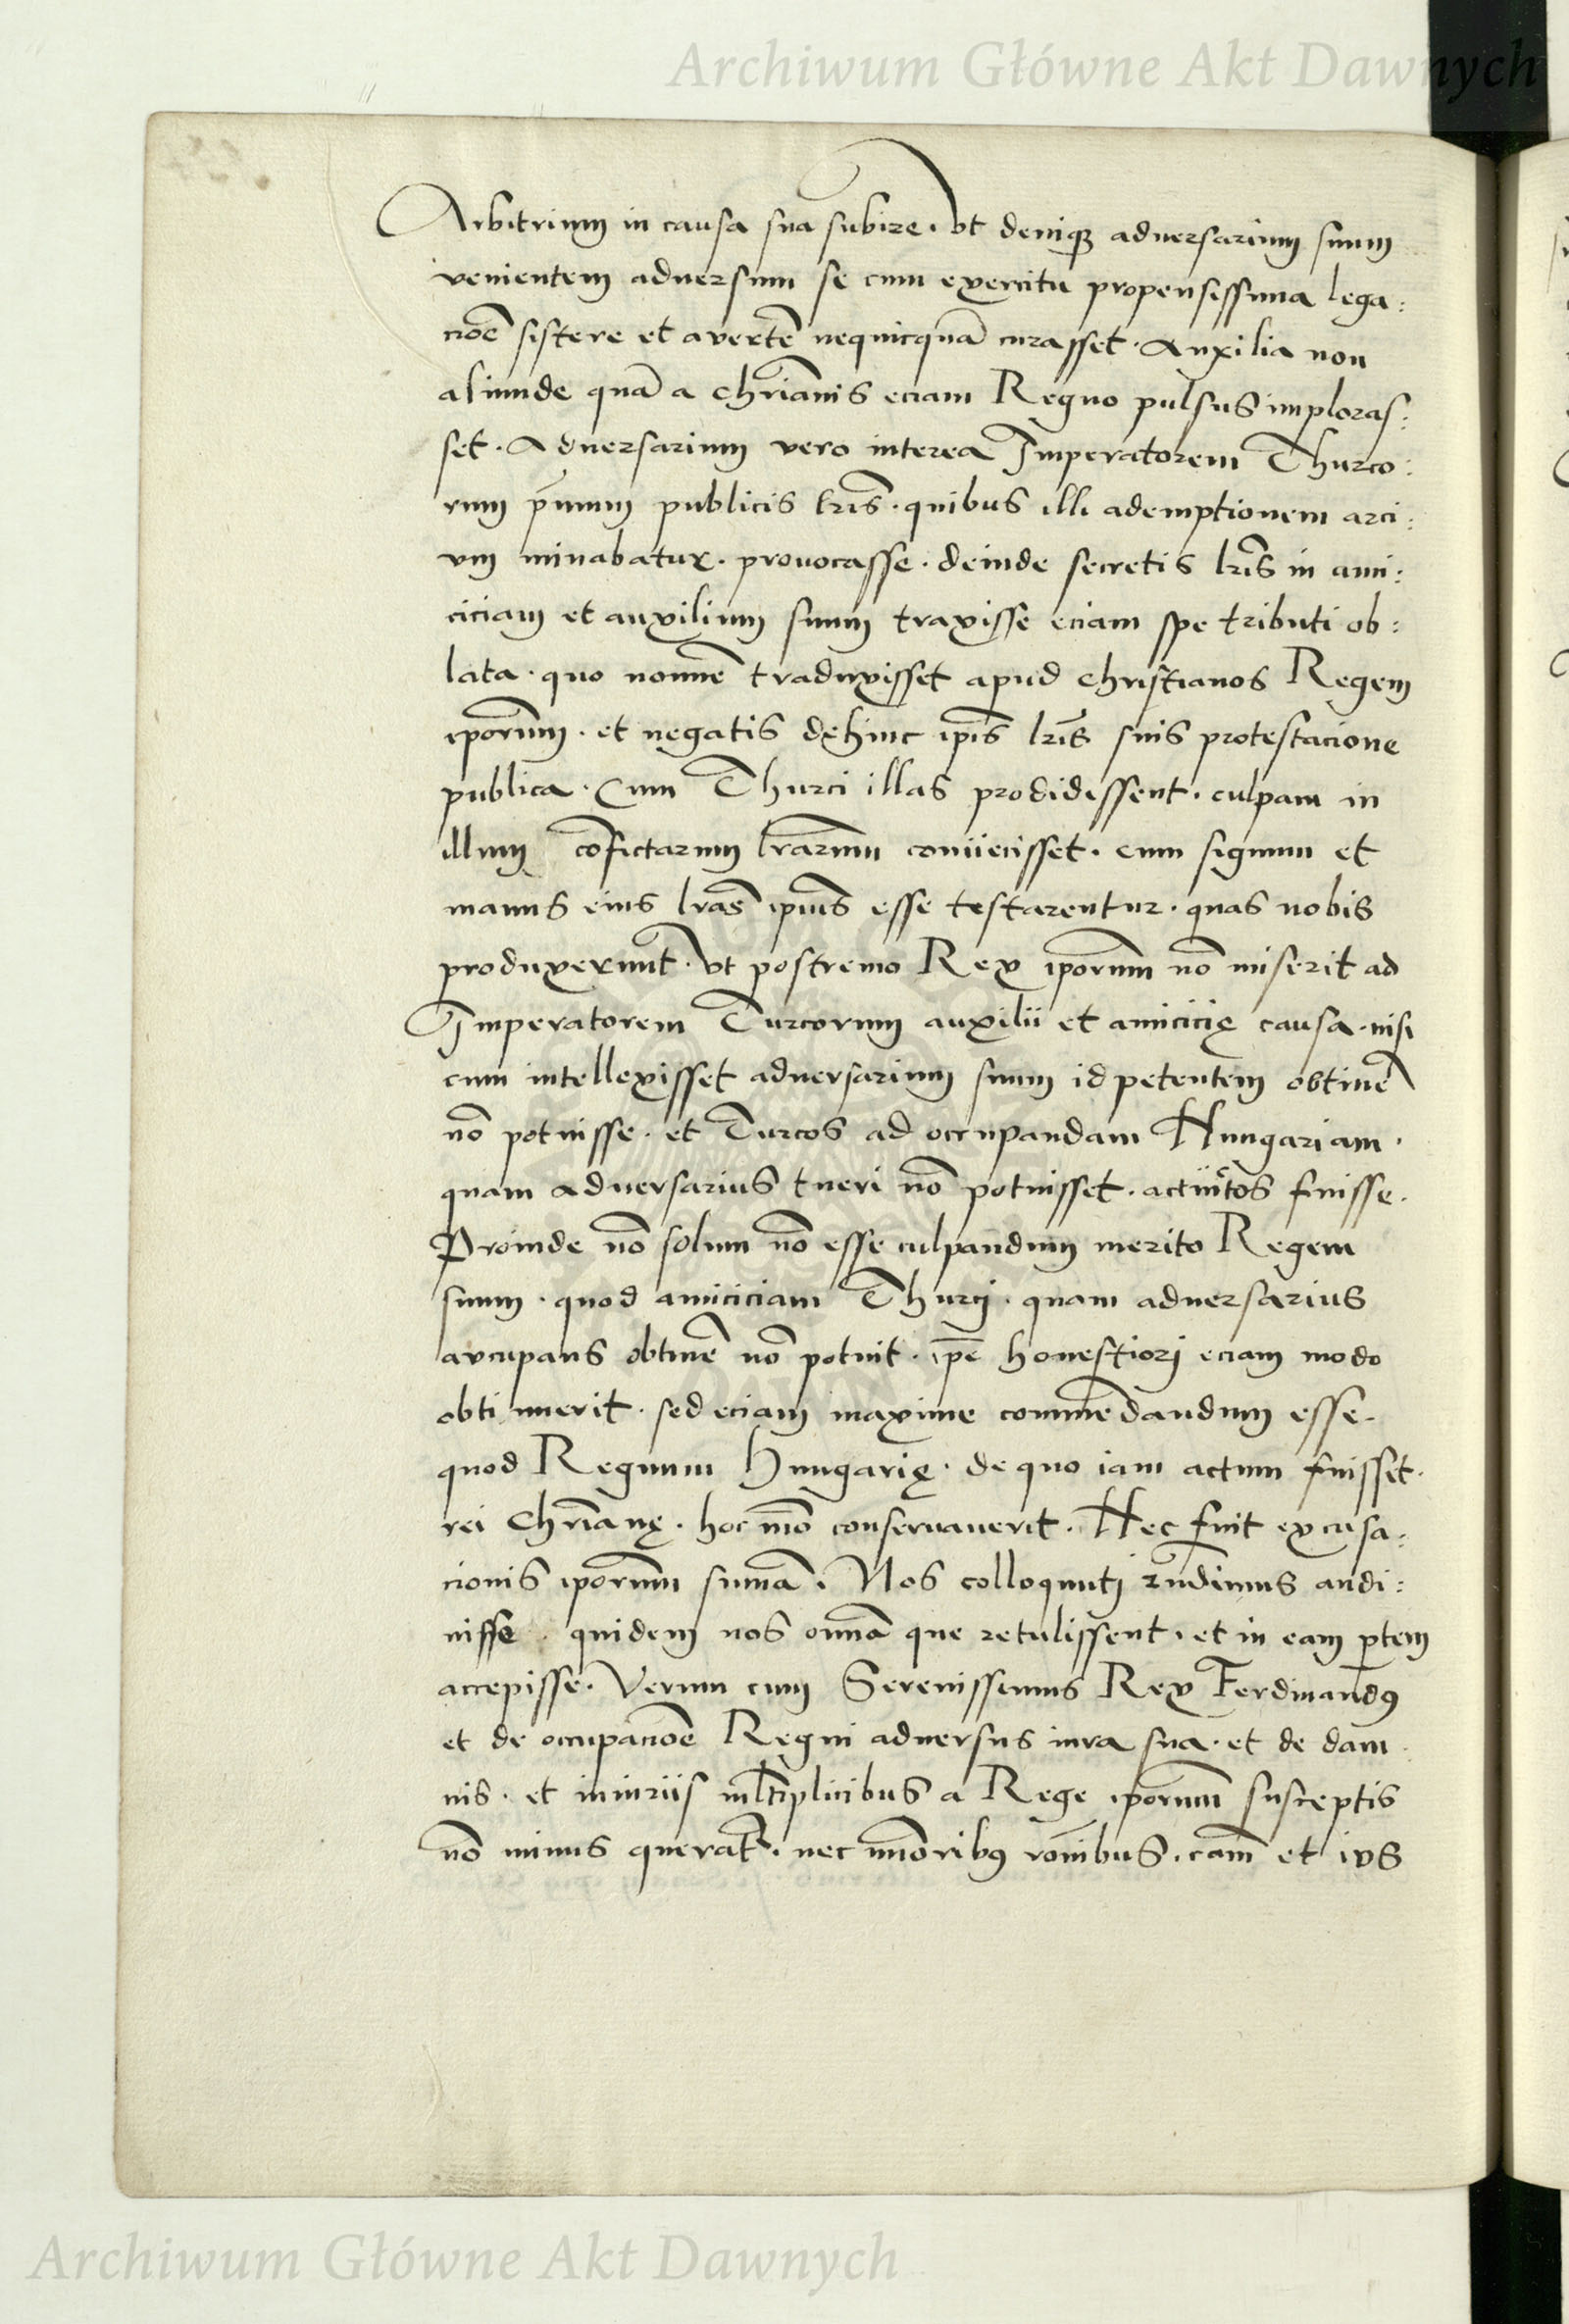 Archiwum Główne Akt Dawnych
Arbitrium in causa sua subire. vt deniqꝫ aduersarium suum
venientem aduersum se cum exercitu propensissima lega:
cioē sistere et auertē nequicquā curasset. Auxilia non
aliunde quā a chrīanis eciam Regno pulsus imploras:
set. Aduersarium vero interea Imperatorem Thurco:
rum pīmum publicis lrīs. quibus illi ademptionem arci:
um minabatur. prouocasse. deinde secretis lrīs in ami:
ciciam et auxilium suum traxisse eciam spe tributi ob:
lata. quo nomīe traduxisset apud christianos Regem
ipōrum. et negatis dehinc ipīs lrīs suis protestacione
publica. Cum Thurci illas prodidissent. culpam in
illum cōfictarum lrārum coniiecisset. cum signum et
manus eius lrās ipīus esse testarentur. quas nobis
produxerunt. Vt postremo Rex ipōrum nō miserit ad
Imperatorem Turcorum auxilii et amicicię causa. nisi
cum intellexisset aduersarium suum id petentem obtinē
nō potuisse. et Turcos ad occupandam Hungariam.
quam aduersarius tueri nō potuisset. actūtos fuisse.
Proinde nō solum nō esse culpandum merito Regem
suum. quod amiciciam Thurcj. quam aduersarius
aucupans obtinē nō potuit. ipē honestiorj eciam modo
obtinuerit. sed eciam maxime commēdandum esse.
quod Regnum Hungarię. de quo iam actum fuisset.
rei Chrīanę. hoc mō conseruauerit. Hec fuit excusa:
cionis ipōrum sumā. Nos colloquutj rn̄dimus audi:
uisse quidem nos omīa que retulissent. et in eam ꝑtem
accepisse. Verum cum Serenissimus Rex Ferdinandꝰ
et de occupacioē Regni aduersus iura sua. et de dam
nis. et iniuriis ml̄tiplicibus a Rege ipōrum susceptis
nō minus querat̄. nec mīoribꝰ rōnibus. cām et ius
Archiwum Główne Akt Dawnych